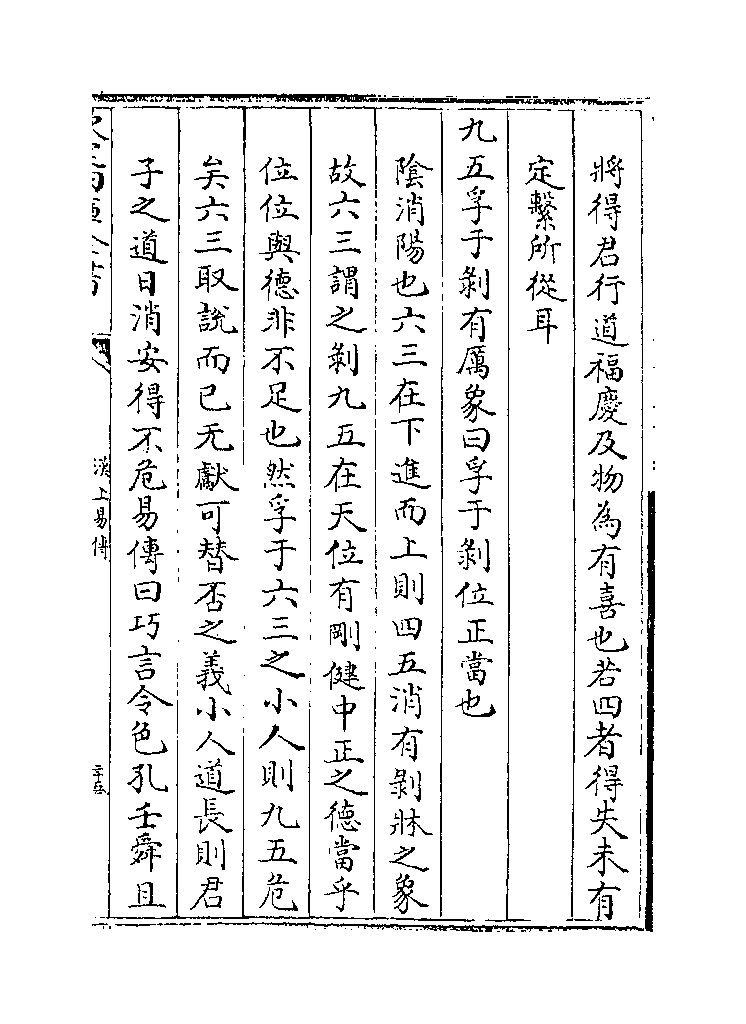 將得君行道福慶及物為有喜也若四者得失未有
定繫所從耳
九五孚于剝有厲象曰孚于剝位正當也
陰消陽也六三在下進而上則四五消有剝牀之象
故六三謂之剝九五在天位有剛健中正之德當乎
位位與德非不足也然孚于六三之小人則九五危
矣六三取説而已无獻可替否之義小人道長則君
子之道日消安得不危易傳曰巧言令色孔壬舜且
漢上易傳